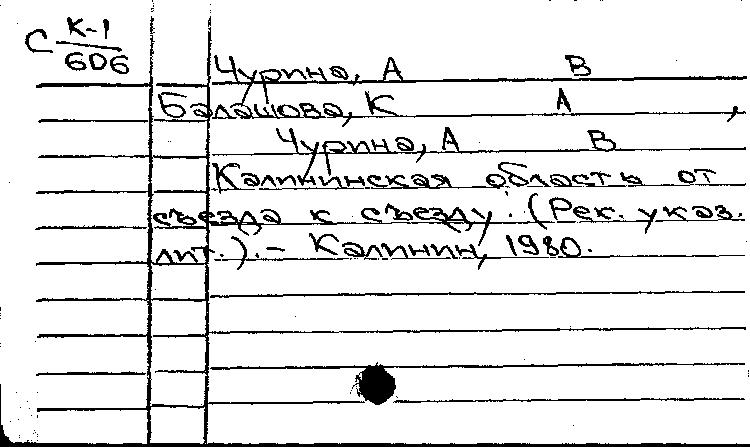 С К-1
606
Чурина, А В
Балашова, К А ,
Чурина, А В
Калининская область от
съезда к съезду: (Рек. указ.
лит.).- Калинин, 1980.